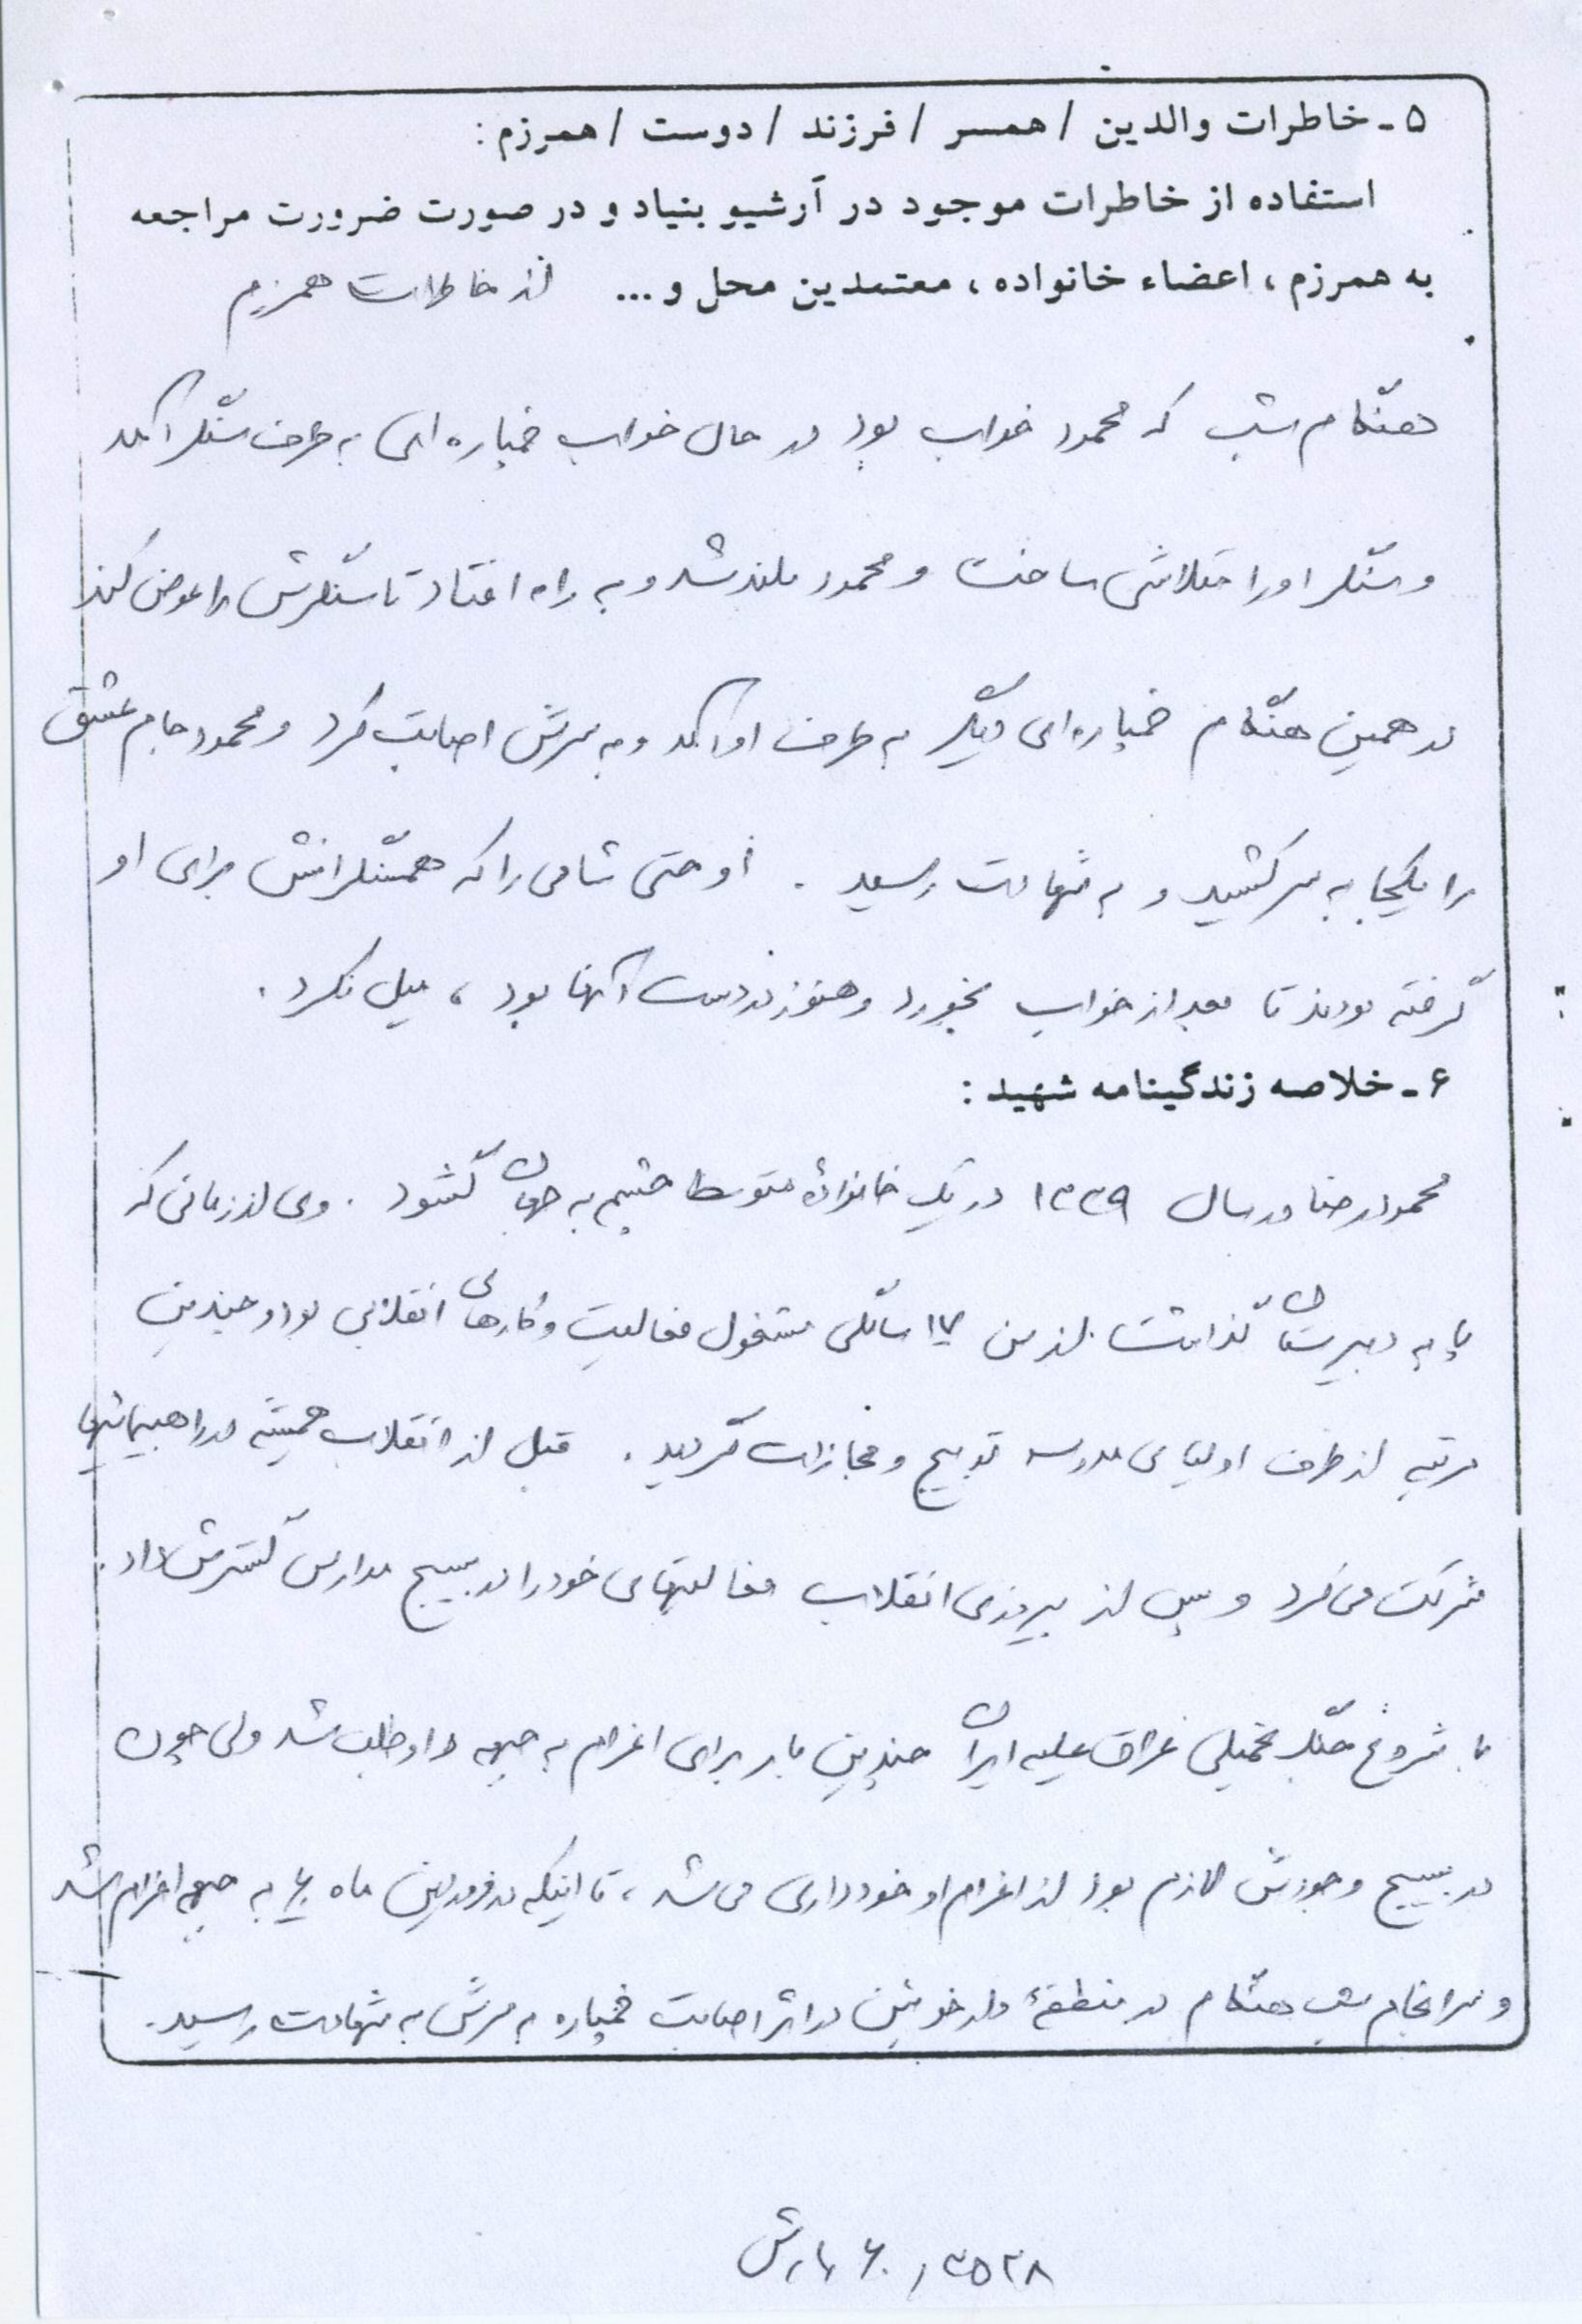 ۵ - خاطرات والدین / همسر / فرزند / دوست / همرزم :
استفاده از خاطرات موجود در آرشیو بنیاد و در صورت ضرورت مراجعه
به همرزم ، اعضاء خانواده ، معتمدین محل و ... از خاطرات همرزم
هنگام شب که محمود خواب بود در حال خواب خمپاره ای به طرف سنگر آمد
و سنگر او را متلاشی ساخت و محمود بلند شد و به راه افتاد تا سنگرش را عوض کند
در همین هنگام خمپاره ای دیگر به طرف او آمد و به سرش اصابت کرد و محمود جام عشق
را یکجا به سر کشید و به شهادت رسید . او حتی شامی را که همسنگرانش برای او
گرفته بودند تا بعد از خواب بخورد و هنوز در دست آنها بود ، میل نکرد .
۶ - خلاصه زندگینامه شهید :
محمودرضا در سال ۱۳۳۹ در یک خانوادهٔ متوسط چشم به جهان گشود . وی از زمانی که
پا به دبیرستان گذاشت از سن ۱۷ سالگی مشغول فعالیت و کارهای انقلابی بود و چندین
مرتبه از طرف اولیای مدرسه توبیخ و مجازات گردید . قبل از انقلاب همیشه در راهپیمائیها
شرکت می کرد و پس از پیروزی انقلاب فعالیتهای خود را در بسیج مدارس گسترش داد .
با شروع جنگ تحمیلی عراق علیه ایران چندین بار برای اعزام به جبهه داوطلب شد ولی چون
در بسیج وجودش لازم بود از اعزام او خودداری می شد ، تا اینکه در فروردین ماه ۶۰ به جبهه اعزام شد
و سرانجام شب هنگام در منطقهٔ دارخوئین در اثر اصابت خمپاره به سرش به شهادت رسید .
۳۵۲۸ / ۶۰